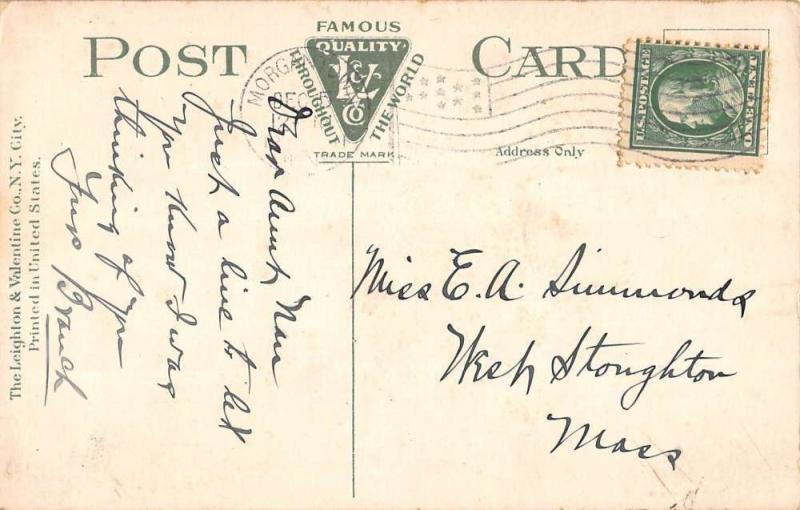 POST CARD
FAMOUS
QUALITY
THROUGHOUT
THE WORLD
L&V
Co
TRADE MARK
MORGA
DEC
U.S. POSTAGE
ONE CENT
Address Only
Dear Aunt Nan
Just a line to let
yo know I was
thinking of you
Branch
Miss E. A. Simmonds
West Stoughton
Mass
The Leighton & Valentine Co., N.Y. City.
Printed in United States.